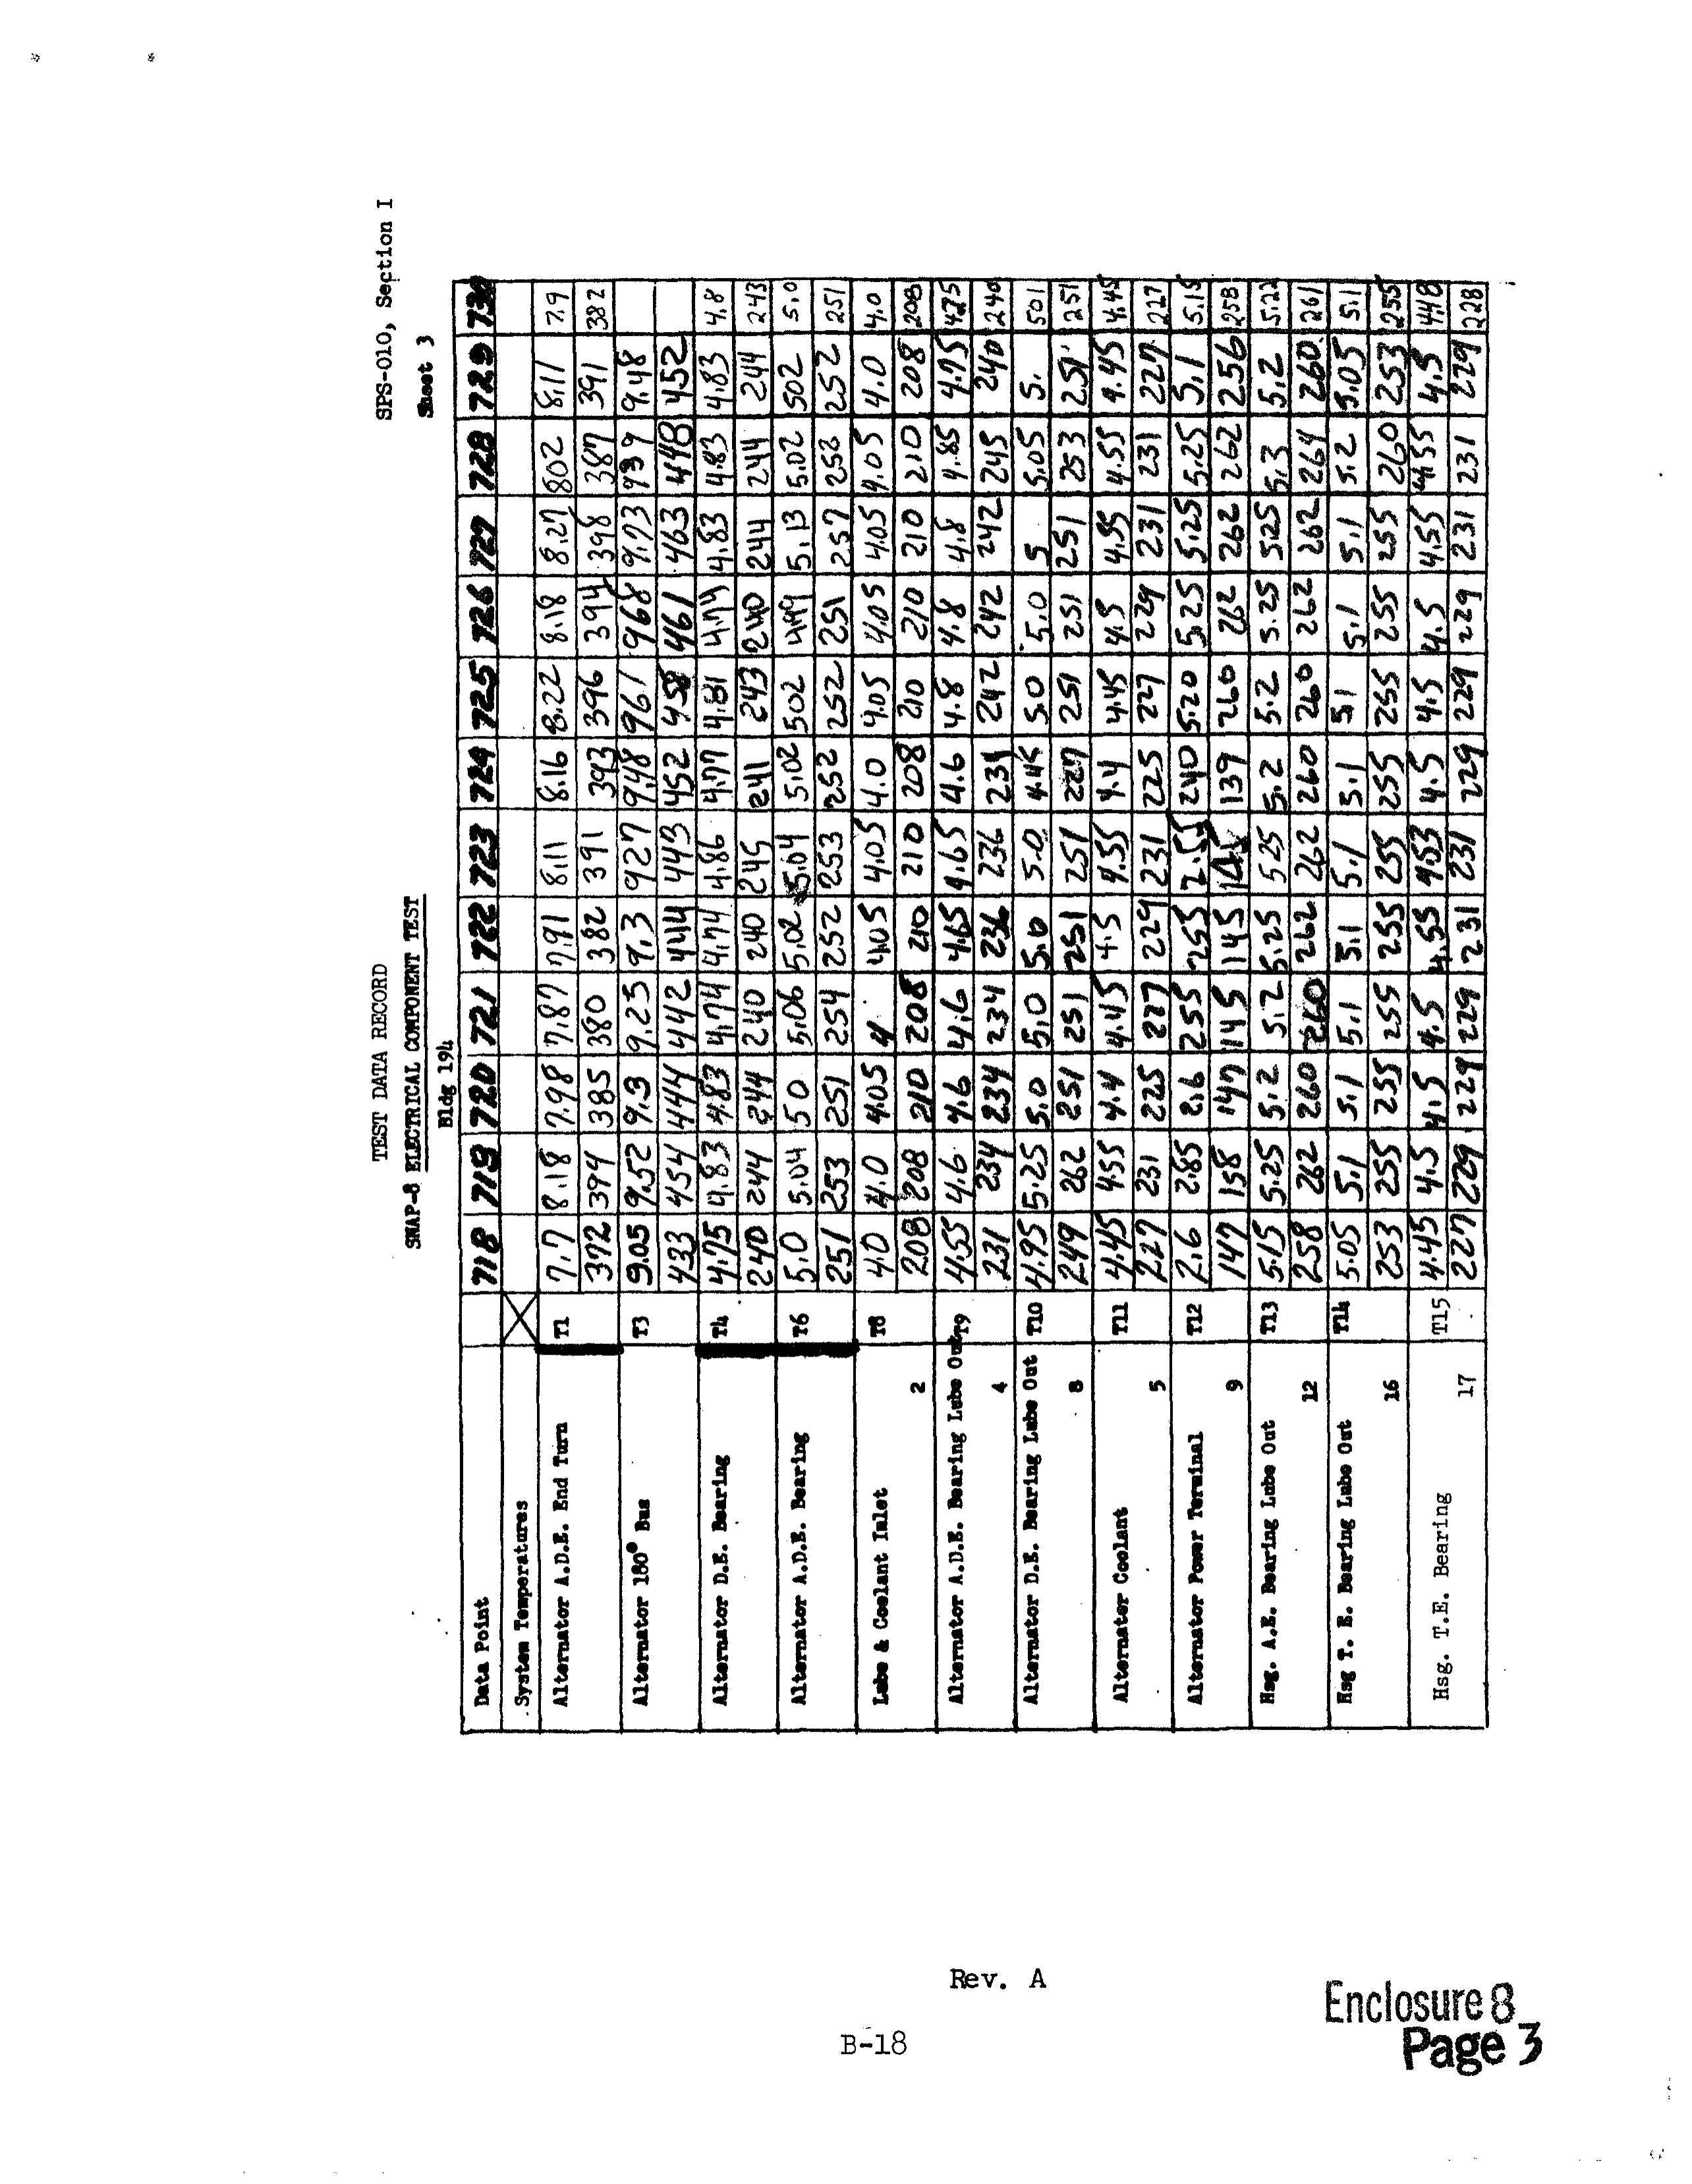 SPS-010, Section I
Sheet 3
TEST DATA RECORD
SNAP-8 ELECTRICAL COMPONENT TEST
Bldg 194
Data Point 718 719 720 721 722 723 724 725 726 727 728 729 730
System Temperatures
Alternator A.D.E. End Turn T1 7.7 8.18 7.98 7.87 7.91 8.11 8.16 8.22 8.18 8.27 802 8.11 7.9
372 394 385 380 382 391 393 396 394 398 387 391 382
Alternator 180° Bus T3 9.05 9.52 9.3 9.25 9.3 927 9.48 961 968 9.73 939 9.48
433 454 444 442 444 443 452 458 461 463 448 452
Alternator D.E. Bearing T4 4.75 4.83 4.83 4.74 4.74 4.86 4.77 4.81 4.74 4.83 4.83 4.83 4.8
240 244 244 240 240 245 241 243 240 244 244 244 243
Alternator A.D.E. Bearing T6 5.0 5.04 50 5.06 5.02 5.04 5.02 502 499 5.13 5.02 502 5.0
251 253 251 254 252 253 252 252 251 257 252 251
Lube & Coolant Inlet T8 4.0 4.0 4.05 4 4.05 4.05 4.0 4.05 4.05 4.05 4.05 4.0 4.0
2 208 208 210 208 210 210 208 210 210 210 210 208 208
Alternator A.D.E. Bearing Lube Out T9 4.55 4.6 4.6 4.6 4.65 4.65 4.6 4.8 4.8 4.8 4.85 4.75 4.75
4 231 234 234 234 236 236 234 242 242 242 245 240 240
Alternator D.E. Bearing Lube Out T10 4.95 5.25 5.0 5.0 5.0 5.0 4.45 5.0 5.0 5 5.05 5. 501
8 249 262 251 251 251 251 227 251 251 251 253 251 251
Alternator Coolant T11 4.45 4.55 4.4 4.45 4.5 4.55 4.4 4.45 4.5 4.55 4.55 4.45 4.45
5 227 231 225 227 229 231 225 227 229 231 231 227 227
Alternator Power Terminal T12 2.6 2.85 2.6 255 255 2.55 240 5.20 5.25 5.25 5.25 5.1 5.15
9 147 158 147 145 145 145 139 260 262 262 262 256 258
Hsg. A.E. Bearing Lube Out T13 5.15 5.25 5.2 5.2 5.25 5.25 5.2 5.2 5.25 5.25 5.3 5.2 5.22
12 258 262 260 260 262 262 260 260 262 262 264 260 261
Hsg T. E. Bearing Lube Out T14 5.05 5.1 5.1 5.1 5.1 5.1 5.1 51 5.1 5.1 5.2 5.05 5.1
16 253 255 255 255 255 255 255 255 255 255 260 253 255
Hsg. T.E. Bearing T15 4.45 4.5 4.5 4.5 4.55 453 4.5 4.5 4.5 4.55 4.55 4.5 448
17 227 229 229 229 231 231 229 229 229 231 231 229 228
Rev. A
B-18
Enclosure 8
Page 3